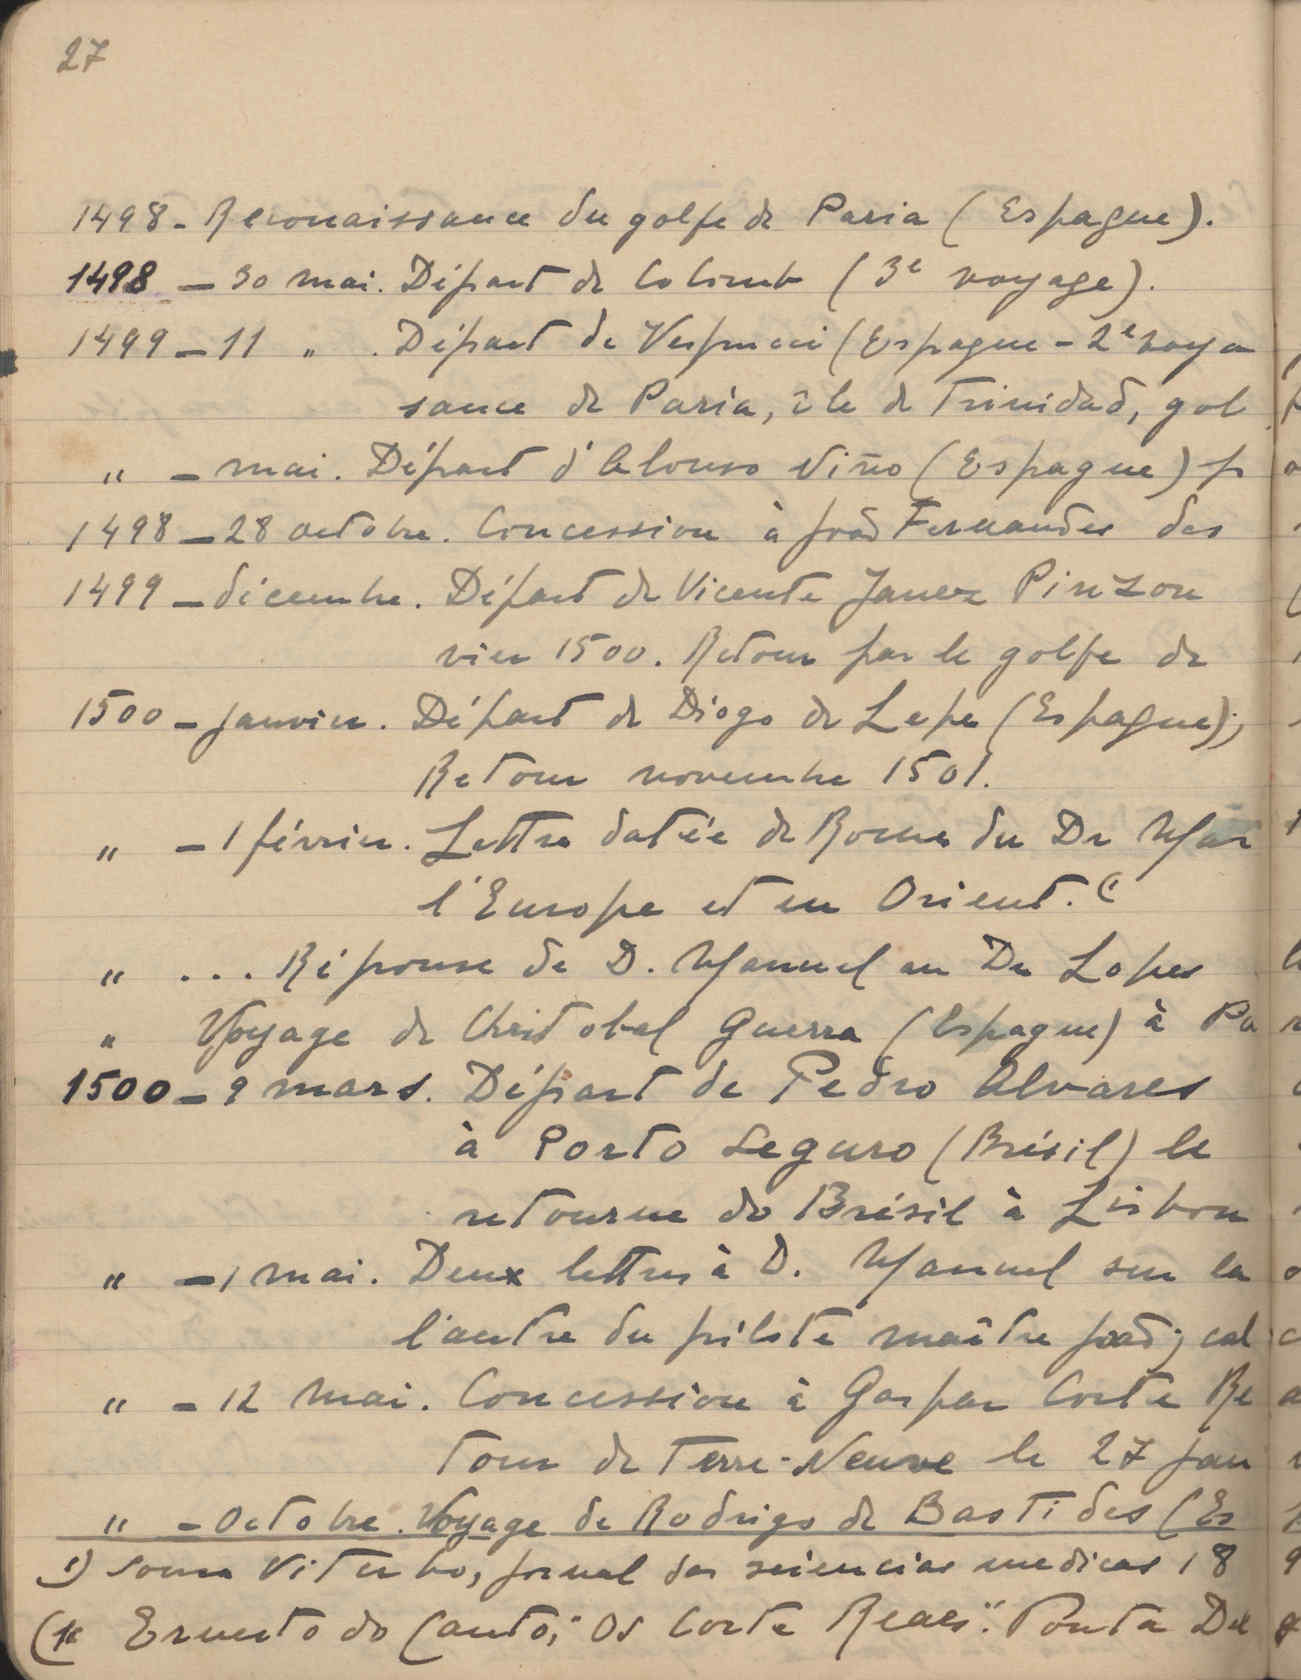 27
1498 - Reconaissance du golfe de Paria (Espagne).
1498 - 30 mai. Départ de Colomb (3e voyage).
1499 - 11 " . Départ de Vespucci (Espagne - 2e voya
sance de Paria, île de Trinidad, gol
" - mai. Départ d'Alonso Niño (Espagne) p
1498 - 28 octobre. Concession à João Fernandes des
1499 - décembre. Départ de Vicente Janez Pinzon
vier 1500. Retour par le golfe de
1500 - janvier. Départ de Diogo de Lepe (Espagne);
Retour novembre 1501.
" - 1 février. Lettre datée de Rome du Dr
l'Europe et en Orient. (1
" ... Réponse de D. Manuel au Dr Lopes
" Voyage de Christobal Guerra (Espagne) à Pa
1500 - 9 mars. Départ de Pedro Alvares
à Porto Seguro (Brésil) le
retourne do Brésil à Lisbon
" - 1 mai. Deux lettres à D. Manuel sur la
l'autre du pilote maître João; cal
" - 12 mai. Concession à Gaspar Corte Re
tour de Terre-Neuve le 27 jan
" - Octobre. Voyage de Rodrigo de Bastides (Es
1) Sousa Viterbo, Jornal das sciencias medicas 18
(1c Ernesto do Canto, "Os Corte Reaes". Ponta Del